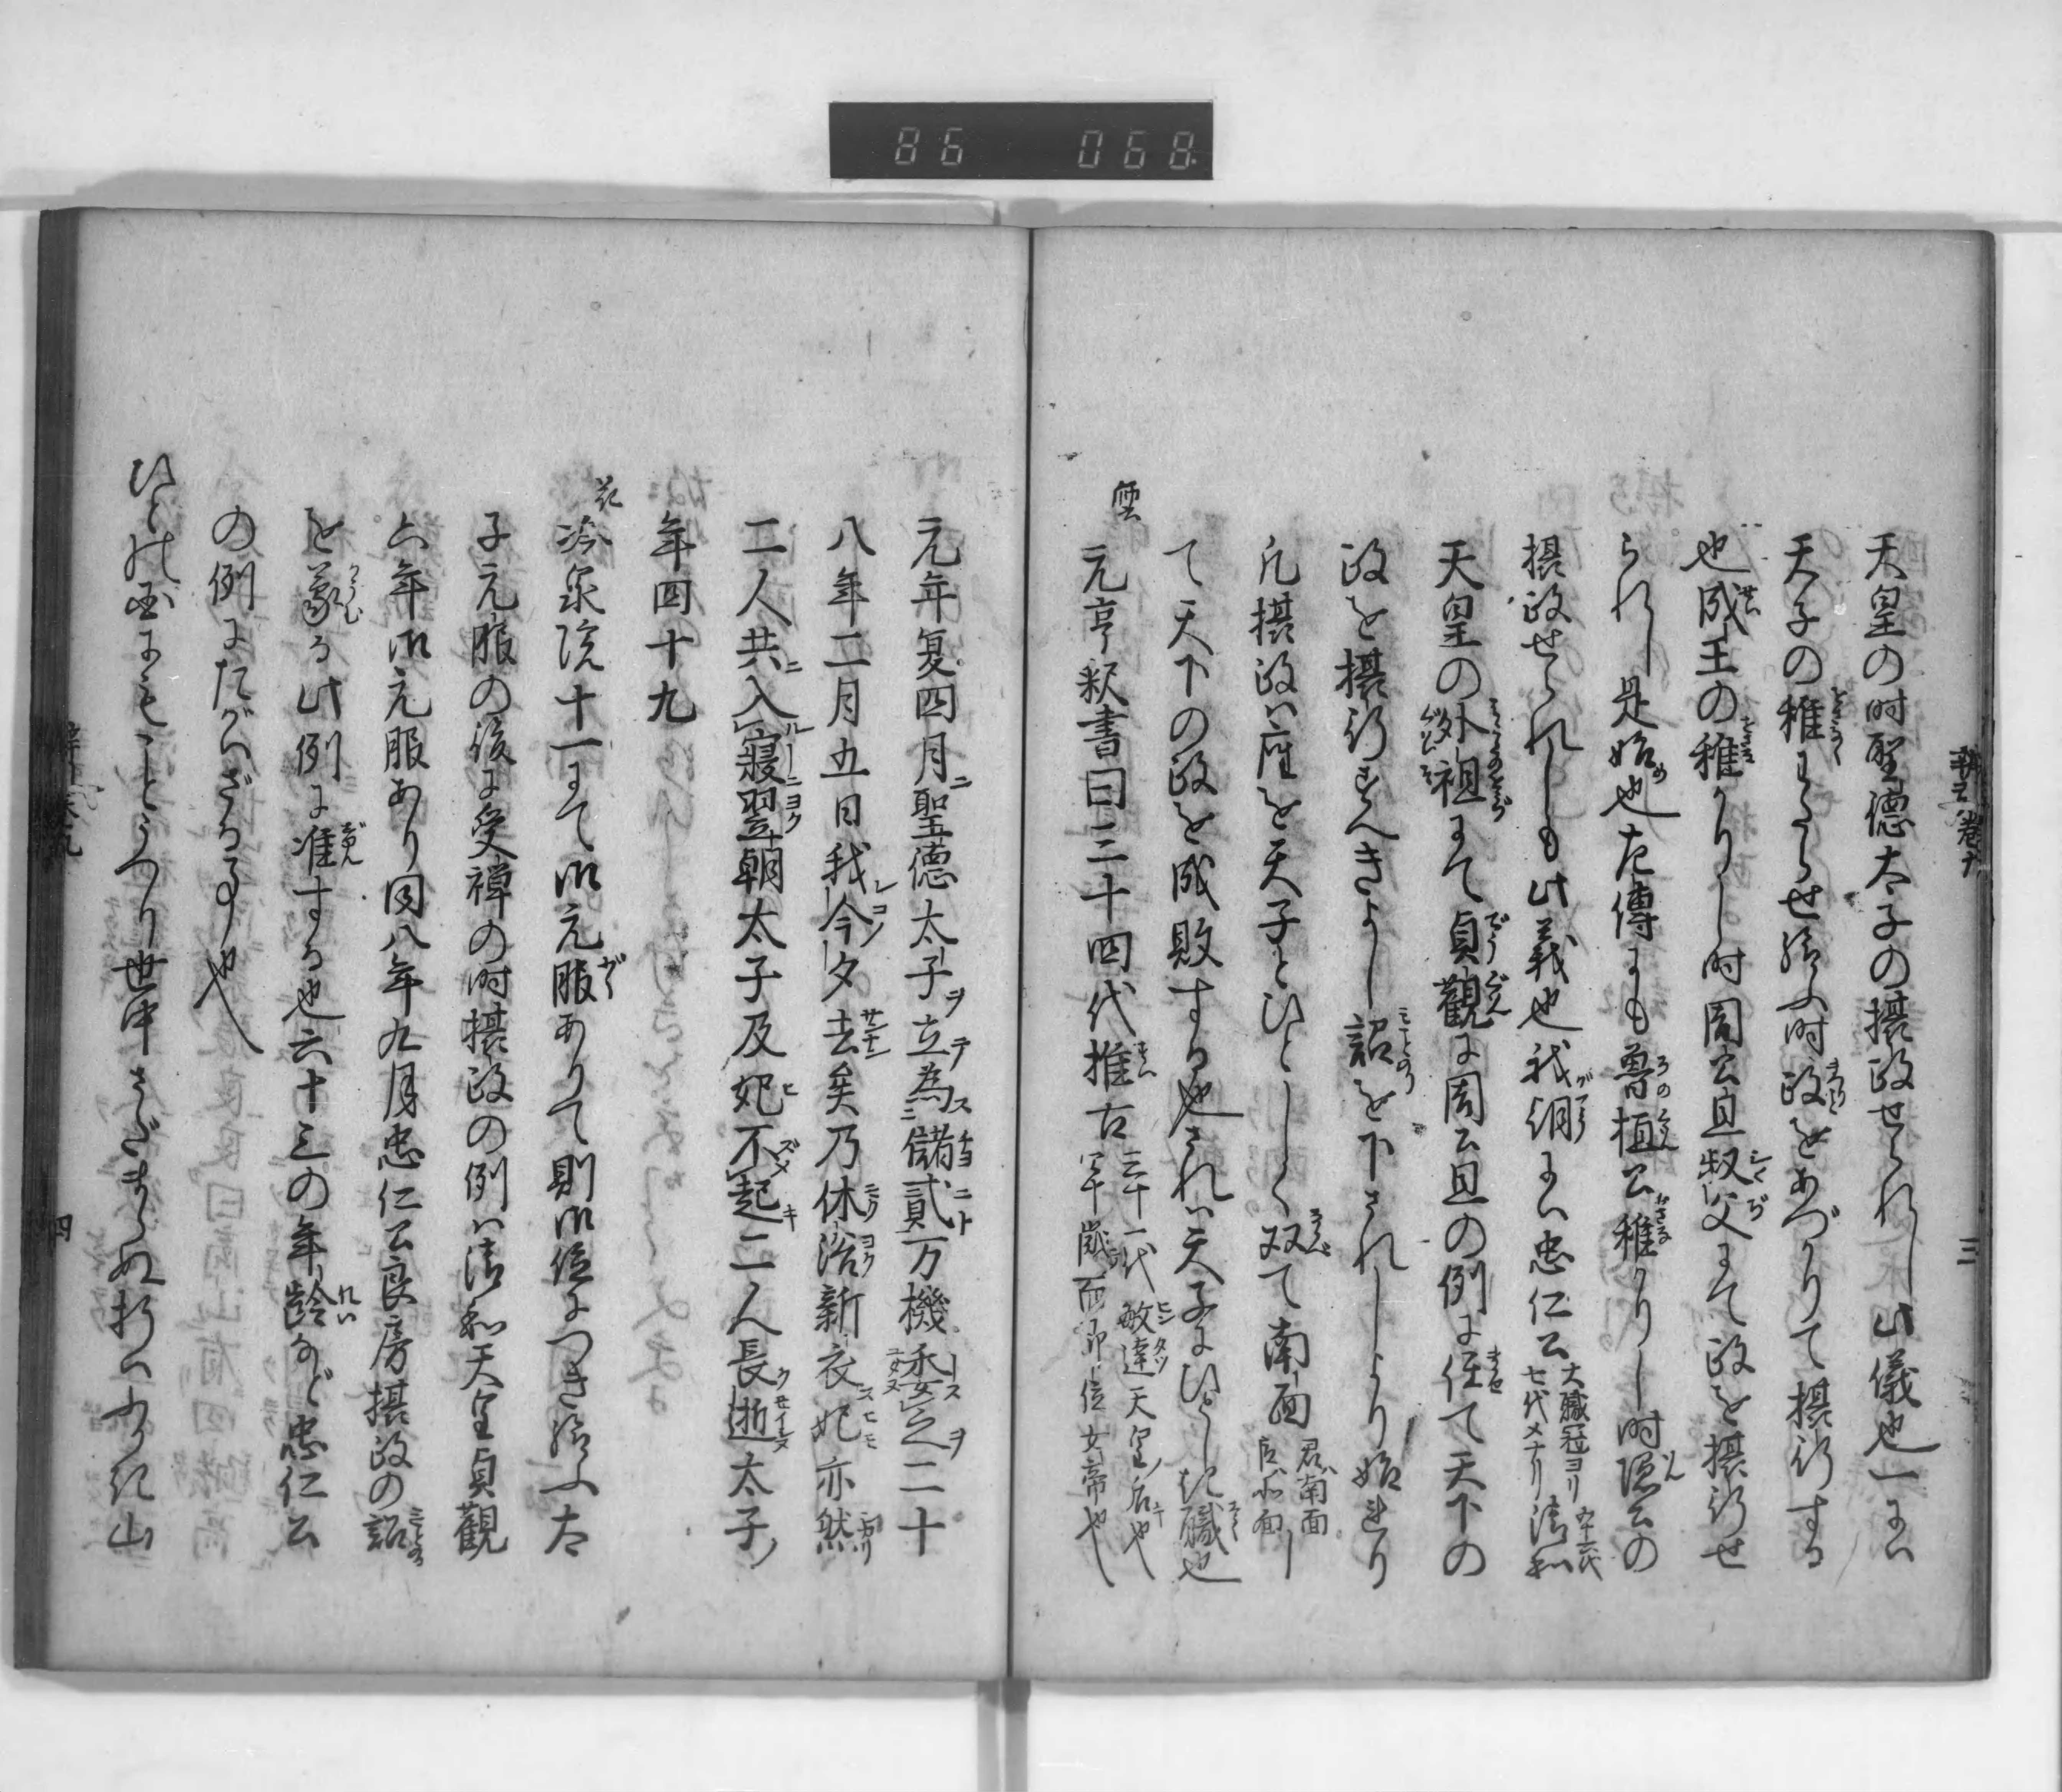 86 068
天皇の時聖徳太子の摂政せられし此儀也一には
天子の稚くわたらせ給ふ時政をあづかりて摂行する
也成王の稚かりし時周公旦叔父にて政を摂行せ
られし是始也左傳にも魯桓公稚かりし時隠公の
摂政せられしも此義也我朝には忠仁公大職冠ヨリ七代メナリ清和五十六代
天皇の外祖にて貞觀に周公旦の例に任て天下の
政を摂行すへきよし詔を下されしより始まれり
凡摂政は座を天子とひとしく双て南面君ハ南面臣ハ北面し
て天下の政を成敗する也されは天子にひとしき職也
元亨釈書曰三十四代推古三十一代敏達天皇ノ后也四十歳而即位女帝也
元年夏四月聖德太子ヲ立為儲貳万機委之二十
八年二月五日我今夕去矣乃休浴新衣妃亦然
二人共入寢翌朝太子及妃不起二人長逝太子ノ
年四十九
冷泉院十一にて御元服ありて則御位につき給ふ太
子元服の後に受禅の時摂政の例は清和天皇貞觀
六年御元服あり同八年九月忠仁公良房摂政の詔
を蒙る此例に准する也六十三の年齢など忠仁公
の例にたがはざる事也
ひとの国にもことうつり世中さだまらぬ折はふかき山
辨引巻九
三
四